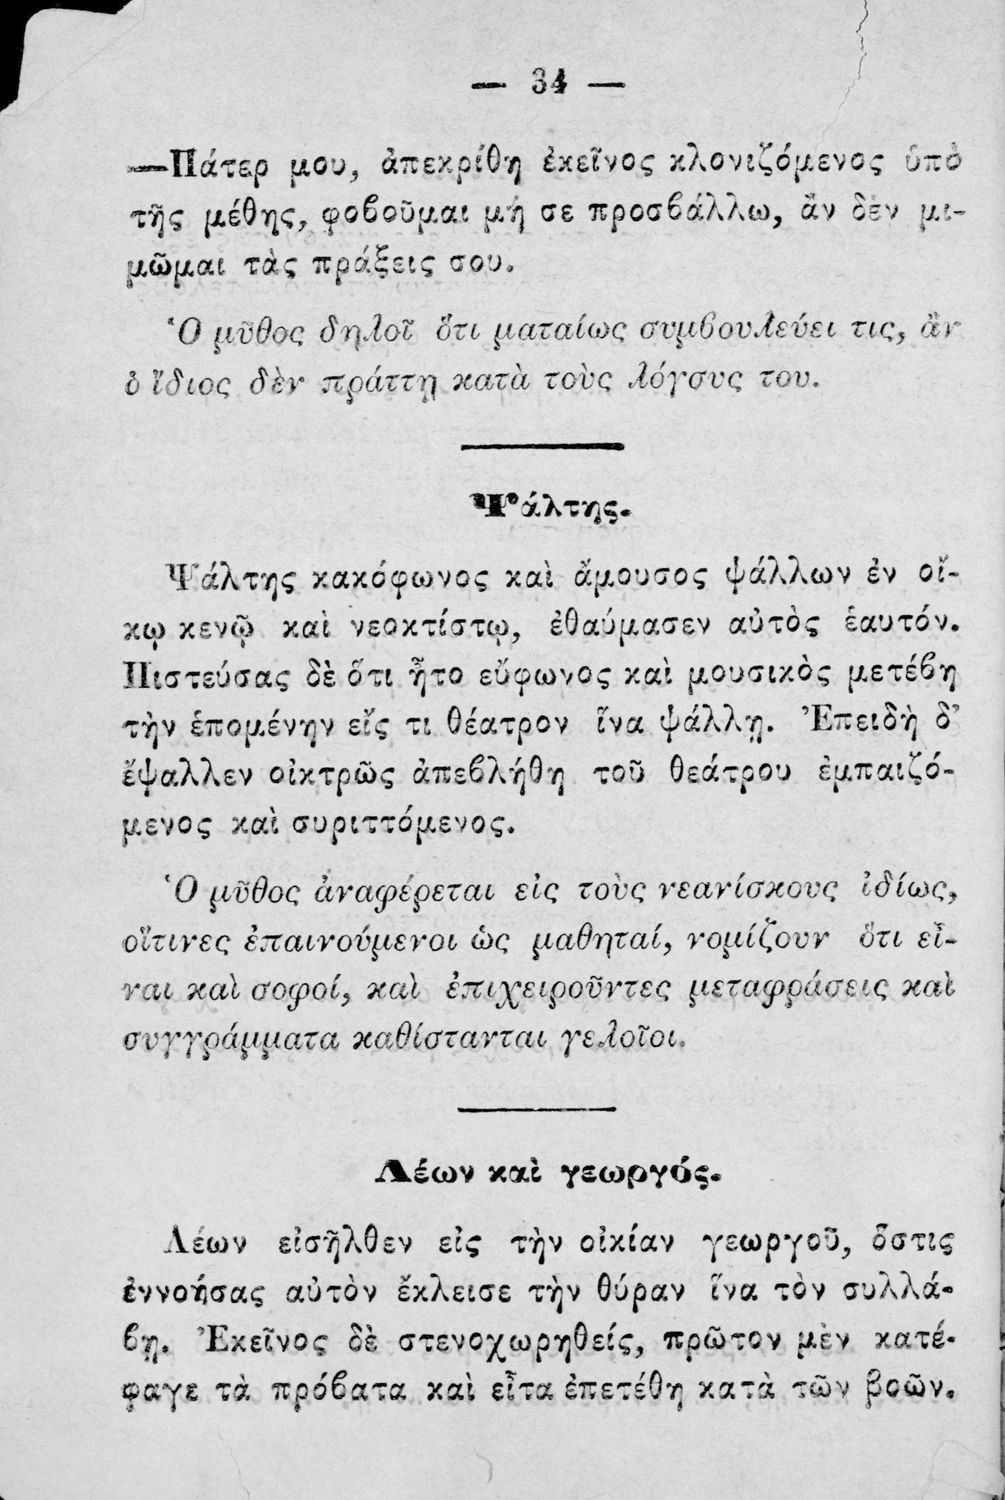 — 34 —
—Πάτερ μου, ἀπεκρίθη ἐκεῖνος κλονιζόμενος ὑπὸ
τῆς μέθης, φοϐοῦμαι μή σε προσϐάλλω, ἂν δὲν μι-
μῶμαι τὰς πράξεις σου.
Ὁ μῦθος δηλοῖ ὅτι ματαίως συμϐουλεύει τις, ἂν
ὁ ἴδιος δὲν πράττῃ κατὰ τοὺς λόγσυς του.
Ψάλτης.
Ψάλτης κακόφωνος καὶ ἄμουσος ψάλλων ἐν οἴ-
κῳ κενῷ καὶ νεοκτίστῳ, ἐθαύμασεν αὐτὸς ἑαυτόν.
Πιστεύσας δὲ ὅτι ἦτο εὔφωνος καὶ μουσικὸς μετέϐη
τὴν ἑπομένην εἴς τι θέατρον ἵνα ψάλλῃ. Ἐπειδὴ δ’
ἔψαλλεν οἰκτρῶς ἀπεϐλήθη τοῦ θεάτρου ἐμπαιζό-
μενος καὶ συριττόμενος.
Ὁ μῦθος ἀναφέρεται εἰς τοὺς νεανίσκους ἰδίως,
οἵτινες ἐπαινούμενοι ὡς μαθηταί, νομίζουν ὅτι εἶ-
ναι καὶ σοφοί, καὶ ἐπιχειροῦντες μεταφράσεις καὶ
συγγράμματα καθίστανται γελοῖοι.
Λέων καὶ γεωργός.
Λέων εἰσῆλθεν εἰς τὴν οἰκίαν γεωργοῦ, ὅστις
ἐννοήσας αὐτὸν ἔκλεισε τὴν θύραν ἵνα τὸν συλλά-
ϐῃ. Ἐκεῖνος δὲ στενοχωρηθείς, πρῶτον μὲν κατέ-
φαγε τὰ πρόϐατα καὶ εἶτα ἐπετέθη κατὰ τῶν βοῶν.